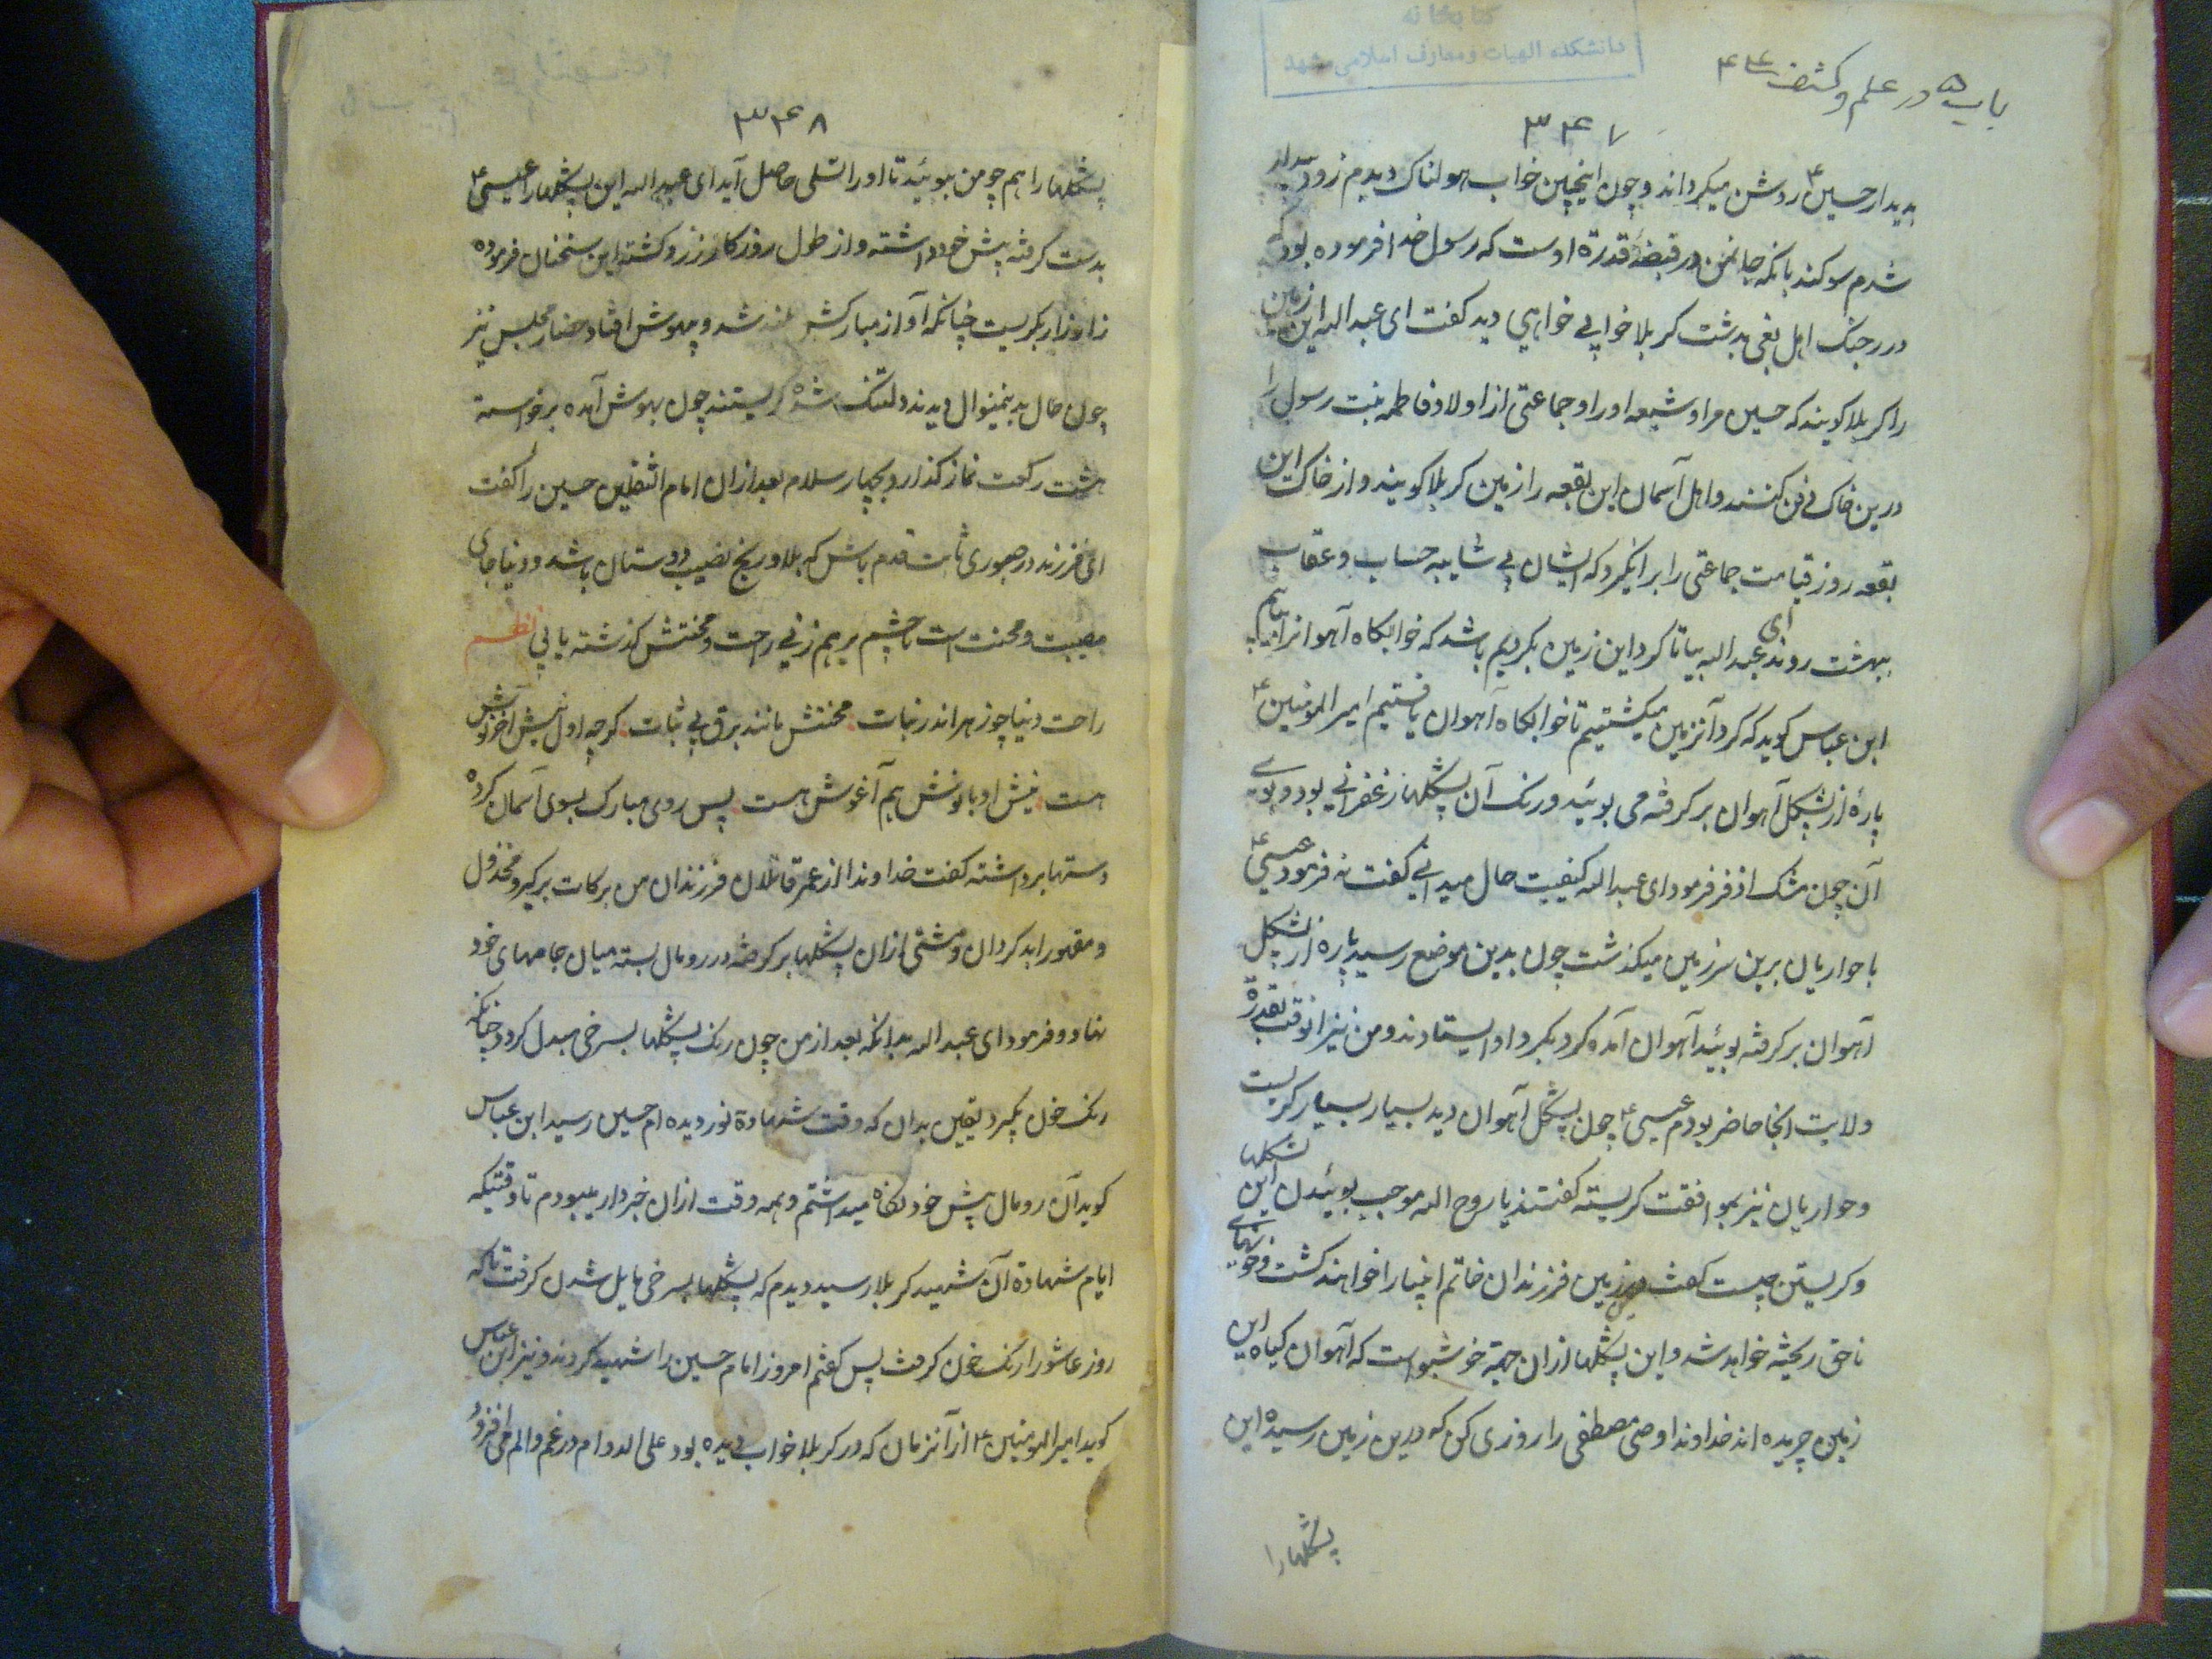 کتابخانه
دانشکده الهیات و معارف اسلامی مشهد
باب ۵ در علم و کشف
۳۴۷
بدیدار حسین ؑ روشن میکرداند و چون اینچنین خواب هولناک دیدم زود بیدار
شدم سوکند بانکه جانمن در قبضۀ قدرة اوست که رسول خدا فرموده بود که
در رجنک اهل بغی بدشت کربلا خوابی خواهی دید کفت ای عبد الله این زمین
را کربلا کویند که حسین مرا و شیعه اورا و جماعتی از اولاد فاطمه بنت رسول را
درین خاک دفن کنند و اهل آسمان این بقعه را زمین کربلا کویند و از خاک این
بقعه روز قیامت جماعتی را برانکیزد که ایشان بی شایبه حساب و عقاب
ببهشت روند ای عبد الله بیا تا کرد این زمین بکردیم باشد که خوابکاه آهوانرا بیابیم
ابن عباس کوید که کرد آنزمین میکشتیم تا خوابکاه آهوان یافتیم امیر المومنین ؑ
پارۀ از پشکل آهوان بر کرفته می بوئید و رنک آن پشکلها زعفرانی بود و بوی
آن چون مشک اذفر فرمود ای عبد الله کیفیت حال میدانی کفت نه فرمود عیسی ؑ
با حواریان برین سرزمین میکذشت چون بدین موضع رسید پاره از پشکل
آهوان بر کرفته بوئید آهوان آمده کرد بکرد او ایستادند و من نیز انوقت بقدرة
ولایت انجا حاضر بودم عیسی ؑ چون پشکل آهوان دید بسیار بسیار کریست
و حواریان نیز بموافقت کریسته کفتند یا روح الله موجب بوئیدن این پشکلها
و کریستن چیست کفت درین زمین فرزندان خاتم انبیارا خواهند کشت و خونهای
ناحق ریخته خواهد شد و این پشکلها ازان جهة خوشبو است که آهوان کیاه این
زمین چریده اند خداوندا وصی مصطفی را روزی کن که درین زمین رسیده این
پشکلها را
۳۴۸
پشکلها را هم چو من ببوئید تا اورا تسلی حاصل آید ای عبد الله این پشکلها را عیسی ؑ
بدست کرفته پیش خود داشته و از طول روزکار زرد کشته این سخنان فرموده
زار زار بکریست چنانکه آواز مبارکش بلند شد و بیهوش افتاد حضار مجلس نیز
چون حال بدینمنوال دیدند دلتنک شده کریستند چون بهوش آمده برخواسته
هشت رکعت نماز کذارد بچهار سلام بعد ازان امام الثقلین حسین را کفت
ای فرزند در صبوری ثابت قدم باش که بلا و رنج نصیب دوستان باشد و دنیا جای
مصیبت و محنت است تا چشم بر هم زنی راحت و محنتش کذشته یابی نظم
راحت دنیا چو زهر اندر نبات محنتش مانند برق بی ثبات کرچه اول نیش اخر نوش
هست نیش او با نوش هم آغوش هست پس روی مبارک بسوی آسمان کرده
دستها برداشته کفت خداوندا از عمر قاتلان فرزندان من برکات برکیر و مخذول
و مقهور ابد کردان و مشتی ازان پشکلها بر کرفته در رومال بسته میان جامهای خود
نهاد و فرمود ای عبد الله بدانکه بعد از من چون رنک پشکلها بسرخی مبدل کردد چنانکه
رنک خون بکیرد یقین بدان که وقت شهادة نور دیده ام حسین رسید ابن عباس
کوید آن رومال پیش خود نکاه میداشتم و همه وقت ازان خبردار میبودم تا وقتیکه
ایام شهادة آن شهید کربلا رسید دیدم که پشکلها بسرخی مایل شدن کرفت تا که
روز عاشورا رنک خون کرفت پس کفتم امروز امام حسین را شهید کردند و نیز ابن عباس
کوید امیر المومنین ؑ از آنزمان که در کربلا خواب دیده بود علی الدوام در غم و الم می افزود